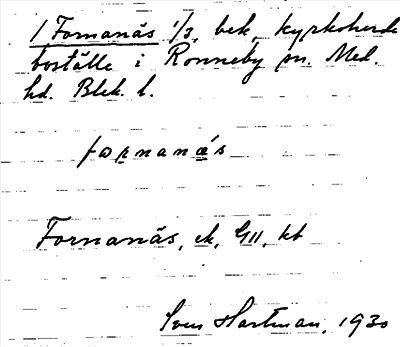 1 Fornanäs 1/3, bek, kyrkoherde
boställe i Ronneby sn. Med.
hd. Blek. l.
fornanäs
Fornanäs, ek, GII, kb
Sven Hartman, 1930